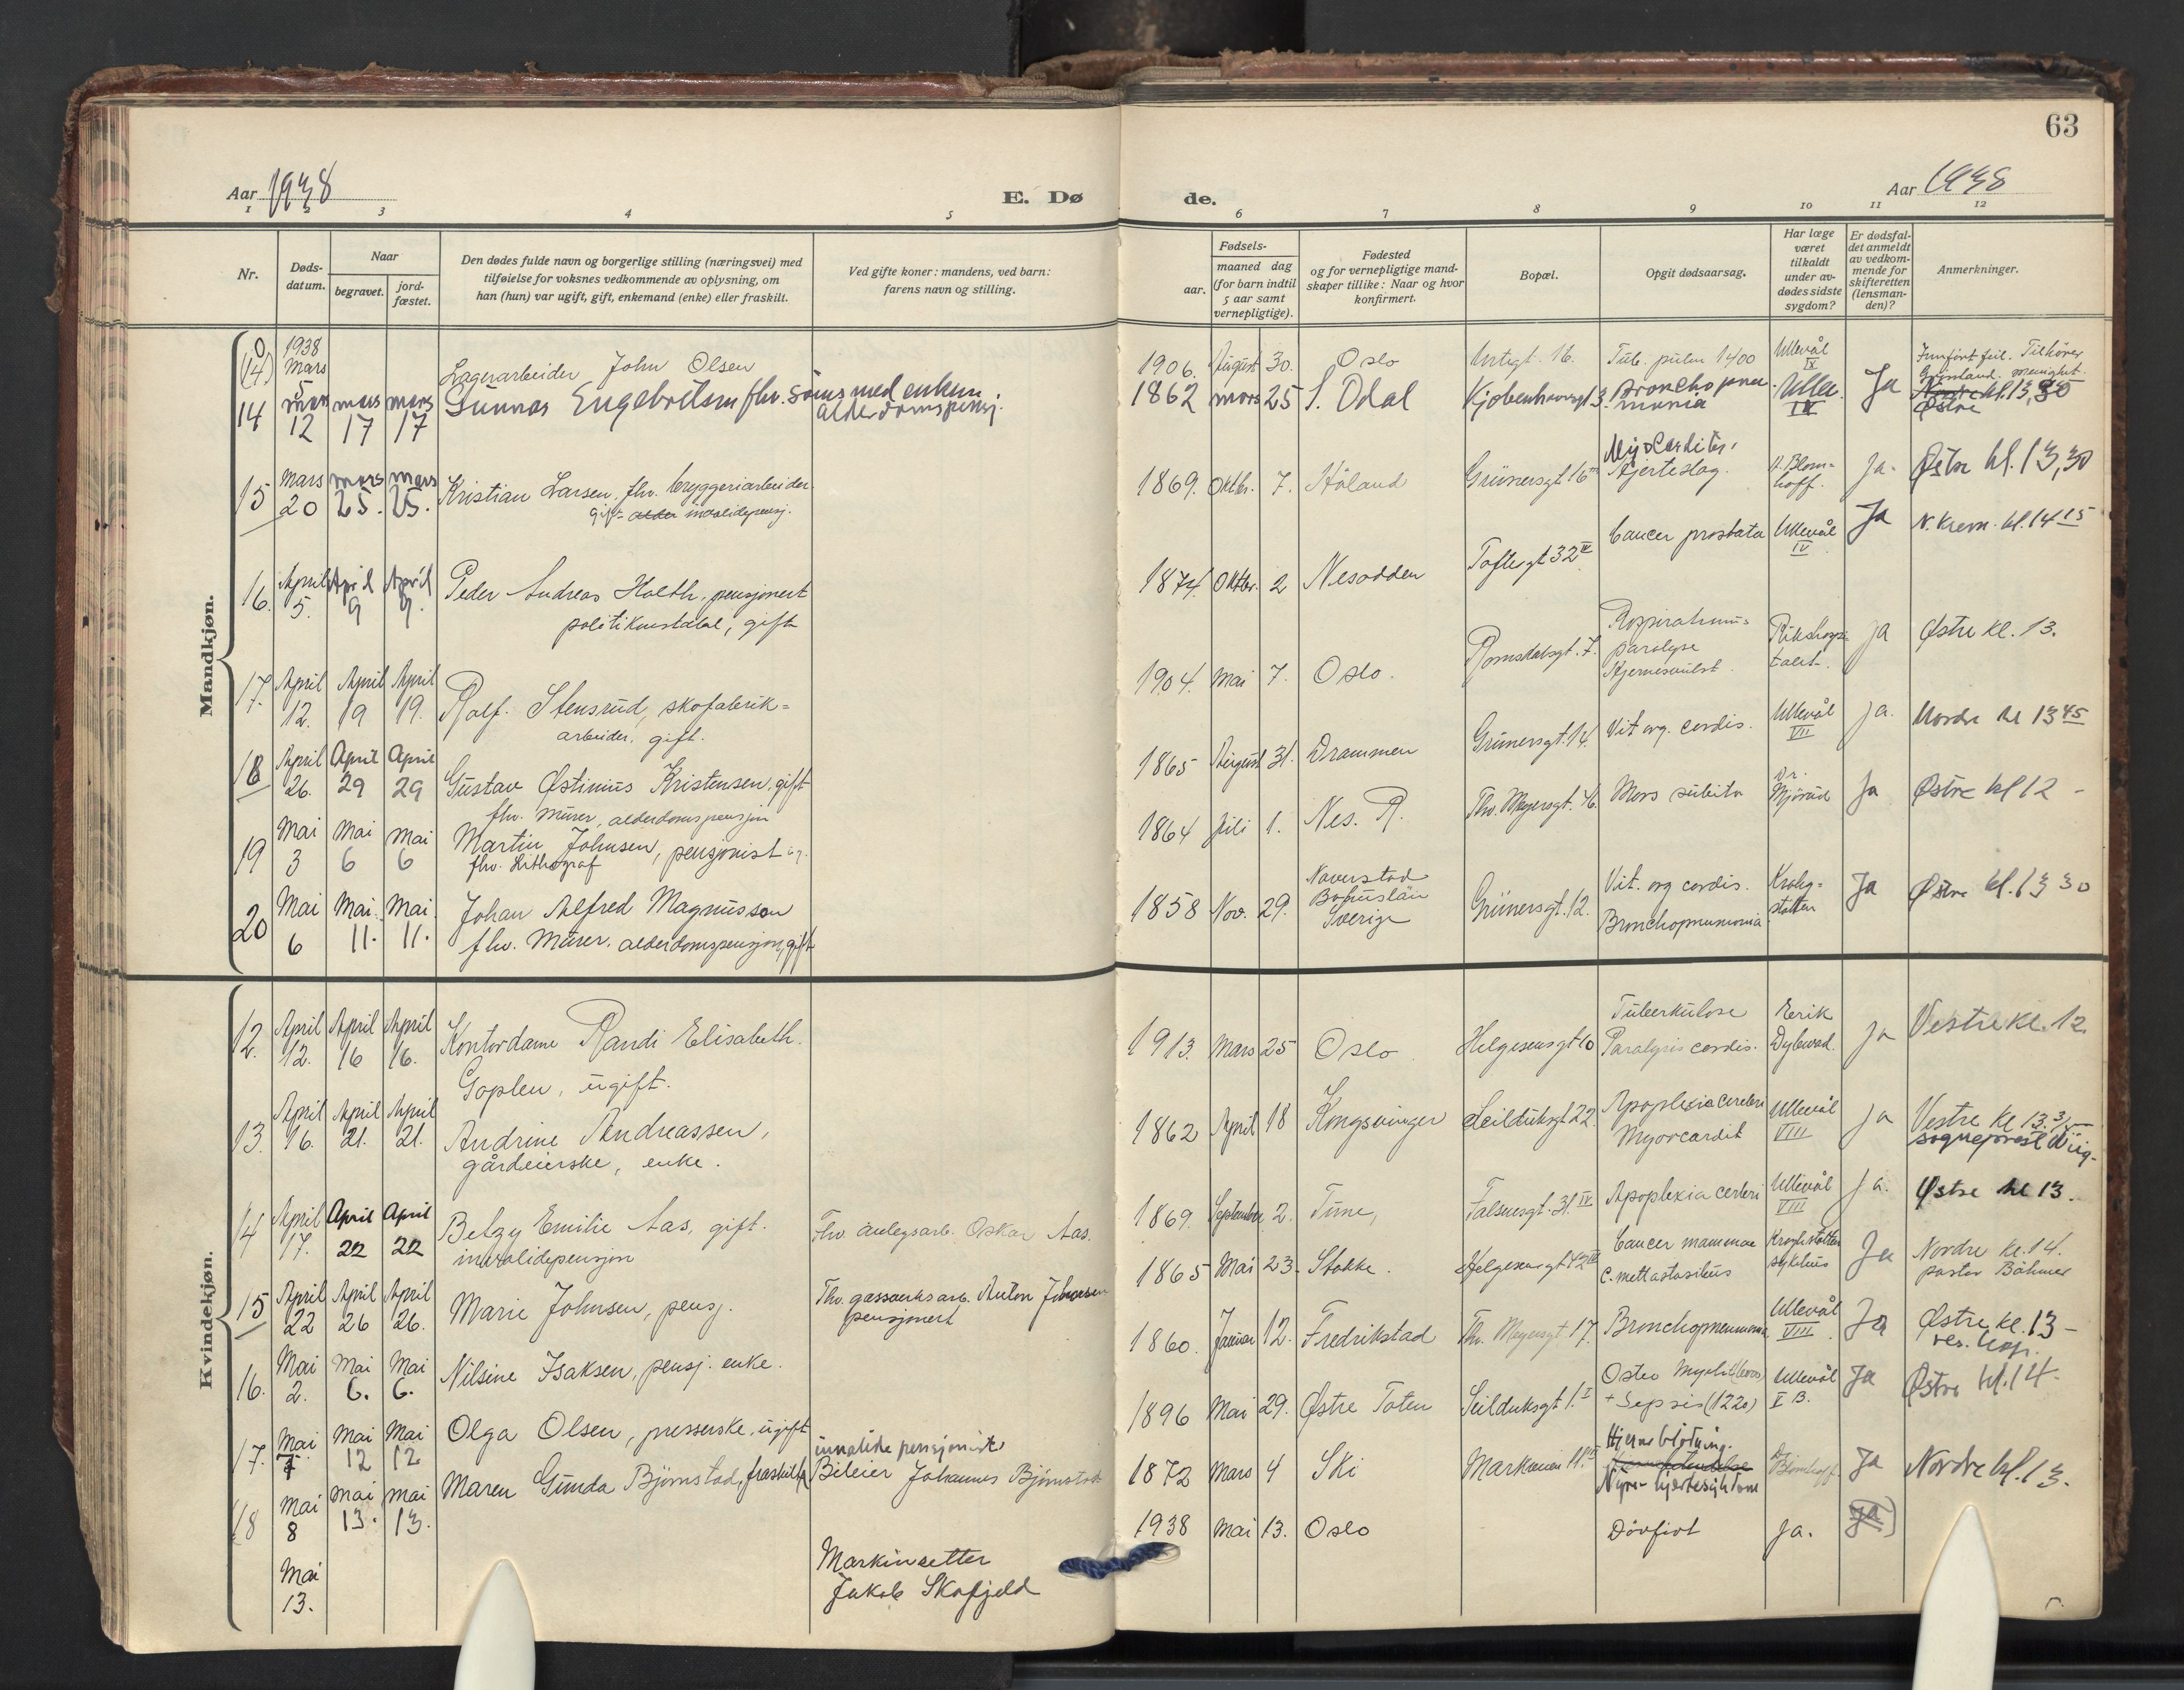 63
Aar 1938
E. Dø
de.
Aar 1938
1 2 3 4 5 6 7 8 9 10 11 12
Nr.
Døds-
datum.
Naar
begravet.
jord-
fæstet.
Den dødes fulde navn og borgerlige stilling (næringsvei) med
tilføielse for voksnes vedkommende av oplysning, om
han (hun) var ugift, gift, enkemand (enke) eller fraskilt.
Ved gifte koner: mandens, ved barn:
farens navn og stilling.
Fødsels-
aar.
maaned dag
(for barn indtil
5 aar samt
vernepligtige).
Fødested
og for vernepligtige mand-
skaper tillike: Naar og hvor
konfirmert.
Bopæl.
Opgit dødsaarsag.
Har læge
været
tilkaldt
under av-
dødes sidste
sygdom?
Er dødsfal-
det anmeldt
av vedkom-
mende for
skifteretten
(lensman-
den)?
Anmerkninger.
Mandkjøn.
0 (14) 1938 Mars 5 Lagerarbeider John Olsen 1906. August 30. Oslo Urtegt. 16. Tub. pulm 1400 Ullevål IX Innført feil. Tilhører
Grønland menight.
14 mars 12 mars 17 mars 17 Gunnar Engebretsen fhv. 1862 mars 25 S. Odal Kjøbenhavngt 3. Bronchopneu-
monia Ullev. IX Ja kl. 13,30
alderdomspensj. Østre
15 Mars 20 mars 25. mars 25. Kristian Larsen, fhv. bryggeriarbeider 1869. Oktbr. 7. Høland Grünersgt 16 Myocarditis,
Hjerteslag. Blom-
hoff. ja. Østre kl. 13,30
gift alder invalidepensj.
16. April 5. April 9 April 9. Peder Andreas Holth, pensjonert 1874. Oktbr. 2 Nesodden Toftesgt 32 IV Cancer prostata Ullevål IV Ja N. Krem. kl. 14 15
politikonstabel, gift
17. April 12. April 19 April 19. Rolf. Stensrud, skofabrik= 1904. Mai 7. Oslo. Romsdalsgt. 7. Respirations=
paralyse
Hjernesvulst. Rikshospi=
talet. ja Østre kl. 13.
arbeider, gift.
18 April 26. April 29 April 29 Gustav Østinius Kristensen, gift 1865 August 31. Drammen Grünersgt. 14. Vit. org. cordis. Ullevål VII ja. Nordre kl 13 45
fhv. murer, alderdomspensjon
19 Mai 3 Mai 6 Mai 6 Martin Johnsen, pensjonist 1864 Juli 1. Nes. R. Thv. Meyersgt. 46. Mors subita Dr.
Mjørud Ja Østre kl 12 -
fhv. Lithograf
20 Mai 6 Mai. 11. Mai. 11. Johan Alfred Magnusson 1858 Nov. 29. Naverstad
Bohuslän
Sverige Grünersgt. 12. Vit. org cordis.
Bronchopneumonia Krohg=
støtten Ja Østre kl. 13 30
fhv. murer. alderdomspensjon, gift
Kvindekjøn.
12. April 12. April 16 April 16. Kontordame Randi Elisabeth. 1913. Mars 25 Oslo Helgesensgt 10 Tuberkulose
Paralysis cordis. Eerik
Dybwad. ja Vestre kl. 12.
Goplen, ugift.
13. April 16. April 21. April 21. Andrine Andreassen, 1862 April 18 Kongsvinger Seilduksgt 22. Apoplexia cerebri
Myocardit Ullevål VIII ja Vestre kl. 13.
gårdeierske, enke. sogneprest Wiig.
14 April 17. April 22 April 22 Betzy Emilie Aas, gift. Fhv. anlegsarb. Oskar Aas. 1869. September 2. Tune, Falsensgt. 31. IV Apoplexia cerebri Ullevål VIII ja. Østre kl 13.
invalidepensjon
15 April 22 April 26 April 26. Marie Johnsen, pensj. Fhv. gassverksarb. Anton Johnsen 1865 Mai 23. Stokke. Helgesensgt 42 III Cancer mammae
c. mettastasibus Krohgstøtten
sykehus Ja Nordre kl. 14.
pensjonert pastor Bøhmer
16. Mai 2. Mai 6. Mai 6. Nilsine Isaksen, pensj. enke. 1860. Januar 12. Fredrikstad Thv. Meyersgt 17. Bronchopneumonia Ullevål VIII Ja Østre kl. 13 -
res. kap.
17. Mai 7 Mai 12 Mai 12 Olga Olsen, presserske, ugift 1896 Mai 29. Østre Toten Seilduksgt 1. I Osteo Myelit
+ Sepsis (1220) Ullevål
I B. Ja Østre kl. 14.
18 Mai 8 Mai 13. Mai 13. Maren Gunda Bjørnstad, fraskilt invalide pensjonist
Bileier Johannes Bjørnstad 1872 Mars 4 Ski Markveien 11. Hjerneblødning.
Nyre- hjertesykdom Dr.
Blomhoff. Ja Nordre kl. 13.
Mai 13. Maskinsetter
Jakob Skofjeld 1938 Mai 13. Oslo Dødfødt Ja. Ja